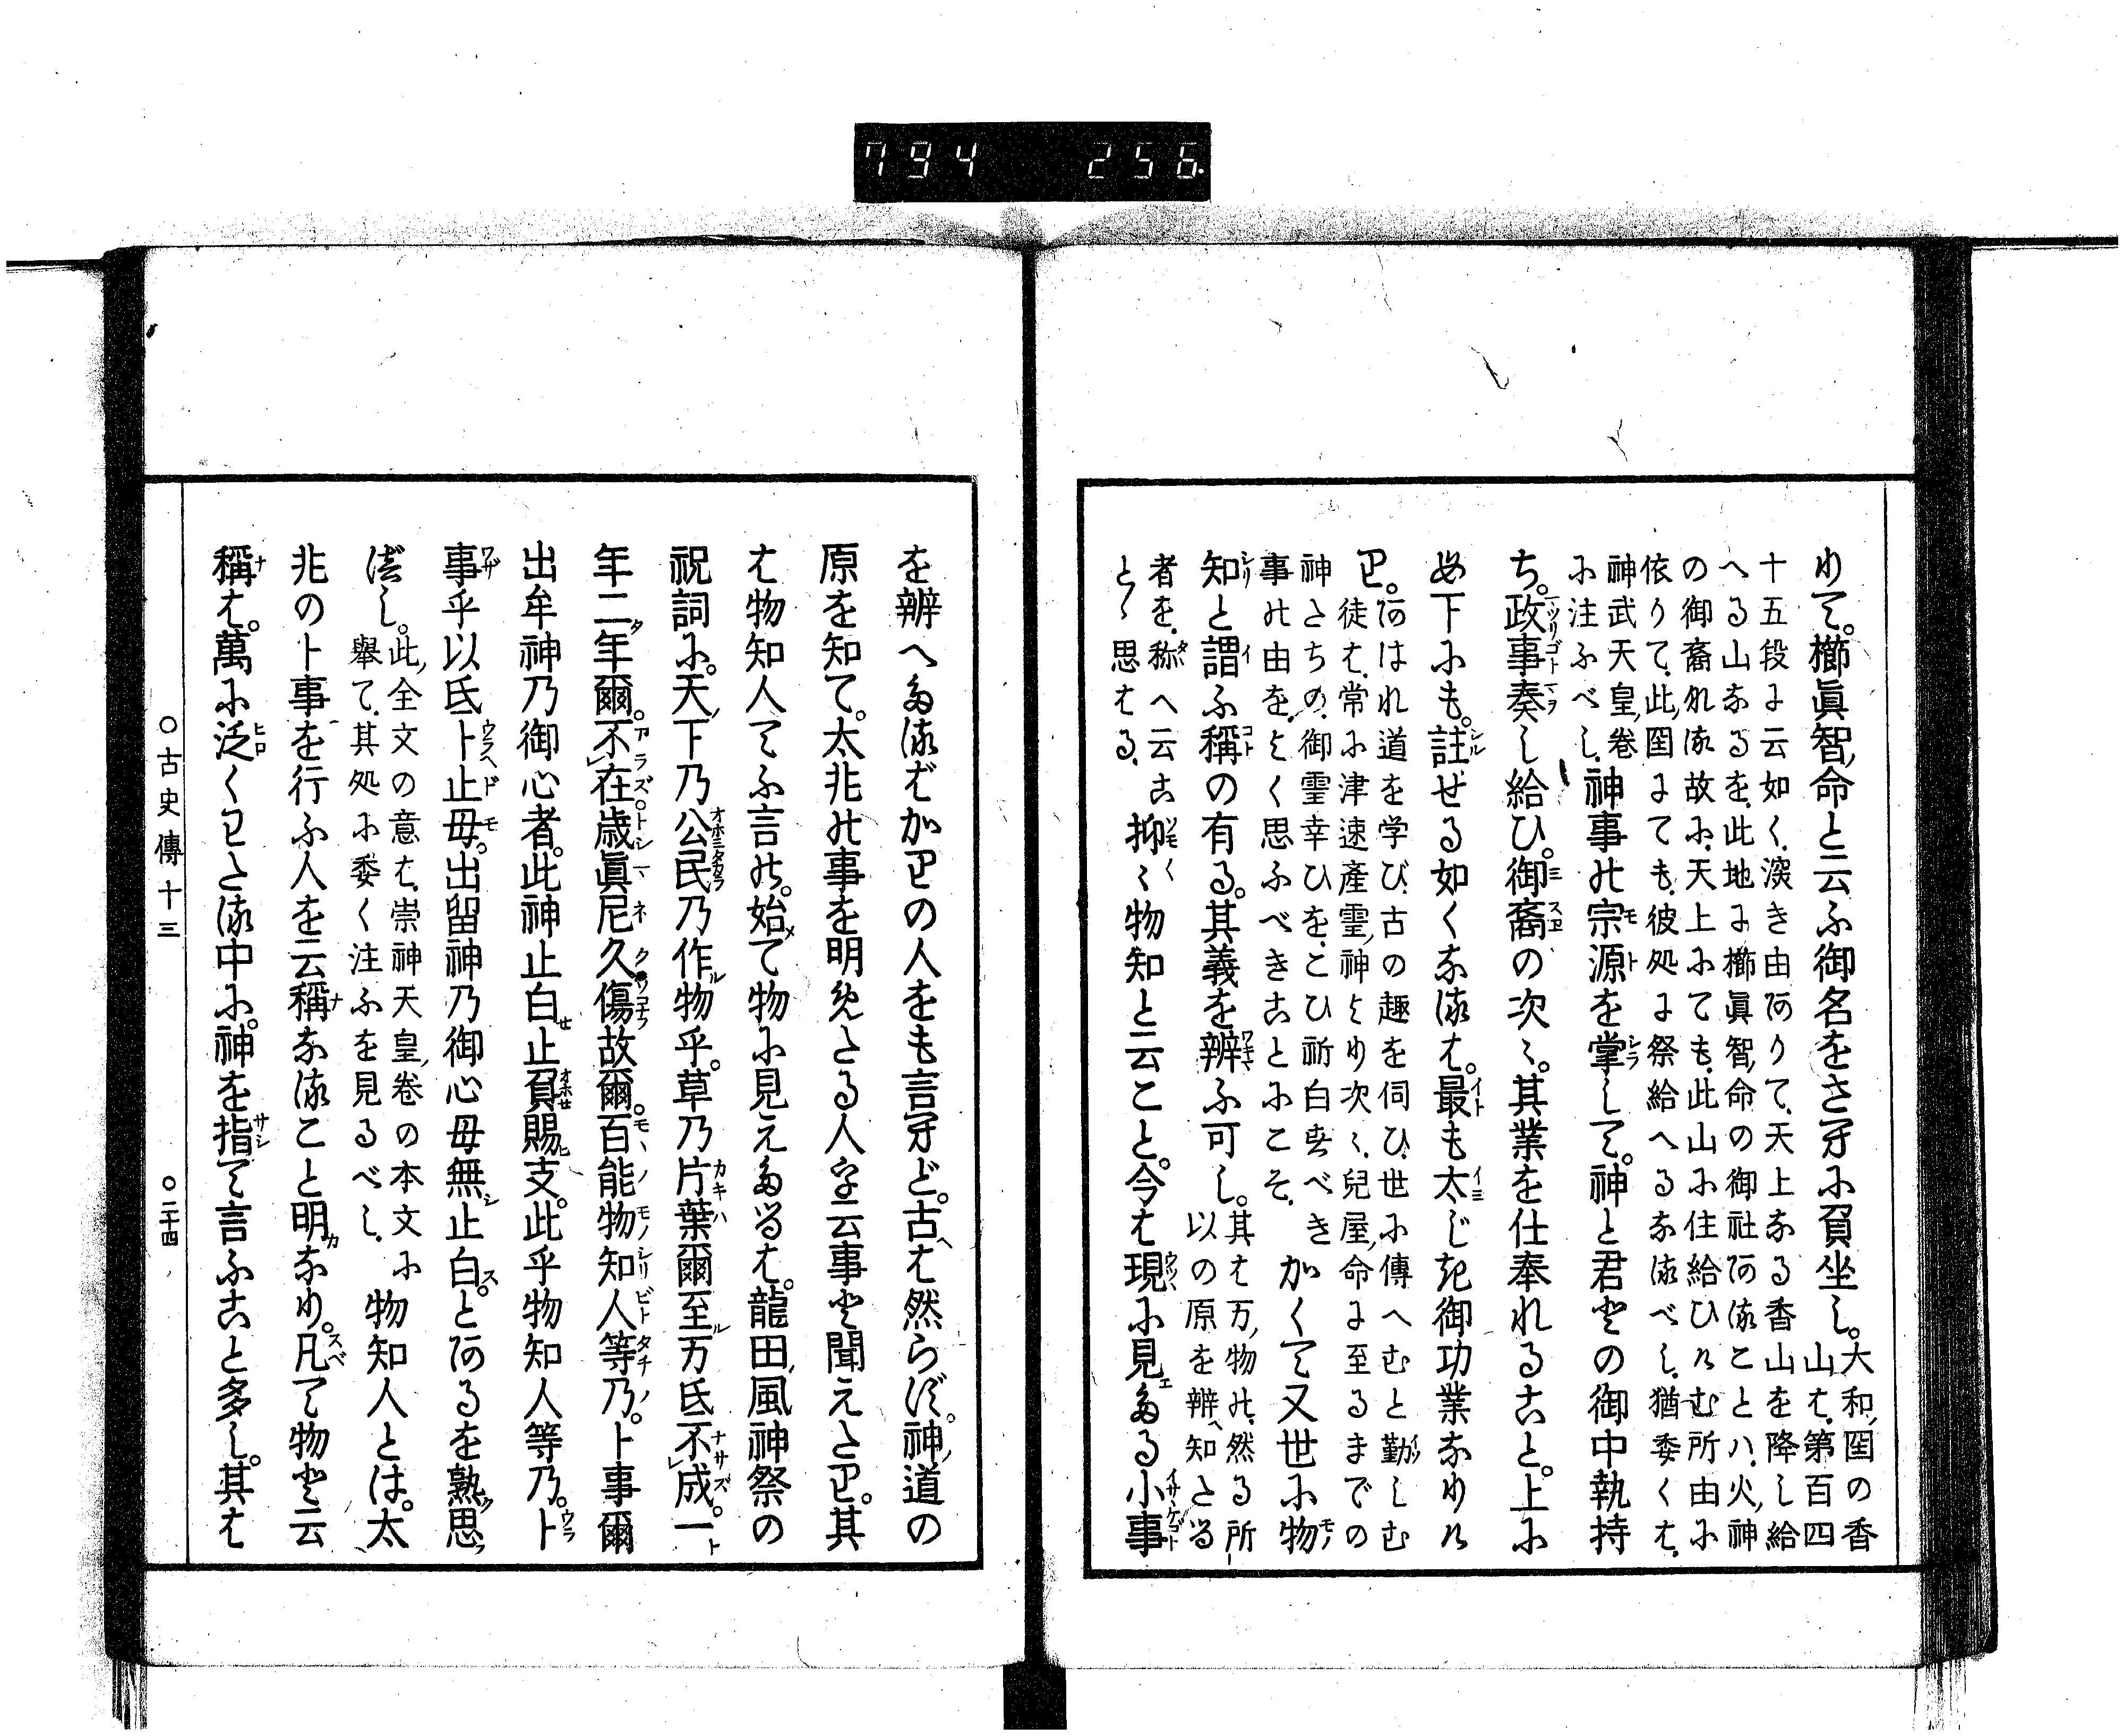 794 256
りて。櫛眞智命と云ふ御名をさへに負坐し。大和国の香
山は。第百四
十五段に云如く、深き由ありて、天上なる香山を降し給
へる山なるを、此地に櫛眞智命の御社あることハ、火神
の御裔なる故に、天上にても、此山に住給ひけむ所由に
依りて、此国にても、彼処に祭給へるなるべし、猶委くは、
神武天皇卷
に注ふべし、
神事の宗源を掌して。神と君との御中執持
ち。政事奏し給ひ。御裔の次々。其業を仕奉れること。上に
め下にも。註せる如くなるは。最も太じき御功業なりけ
り。
あはれ道を学び、古の趣を伺ひ、世に傳へむと勤しむ
徒は、常に津速產霊神より次々、兒屋命に至るまでの
神たちの、御霊幸ひを、こひ祈白すべき
事の由を、よく思ふべきことにこそ、
かくて又世に物
知と謂ふ稱の有る。其義を辨ふ可し。
其は万物の、然る所
以の原を辨知たる
者を、称へ云こ
とゝ思はる、
抑々物知と云こと。今は現に見ゆる小事
を辨へたるばかりの人をも言へど。古は然らず。神道の
原を知て。太兆の事を明めたる人を云事と聞えたり。其
は物知人てふ言の。始て物に見えたるは。龍田風神祭の
祝詞に。天下乃公民乃作物乎。草乃片葉爾至万氐不成。一
年二年爾。不在歳眞尼久傷故爾。百能物知人等乃。卜事爾
出牟神乃御心者。此神止白止負賜支。此乎物知人等乃。卜
事乎以氐卜止毋。出留神乃御心毋無止白。とあるを熟思
べし。
此全文の意は、崇神天皇卷の本文に
舉て、其処に委く注ふを見るべし、
物知人とは。太
兆の卜事を行ふ人を云稱なること明なり。凡て物と云
稱は。萬に泛くわたる中に。神を指て言ふこと多し。其は
○古史傳十三 ○二十四